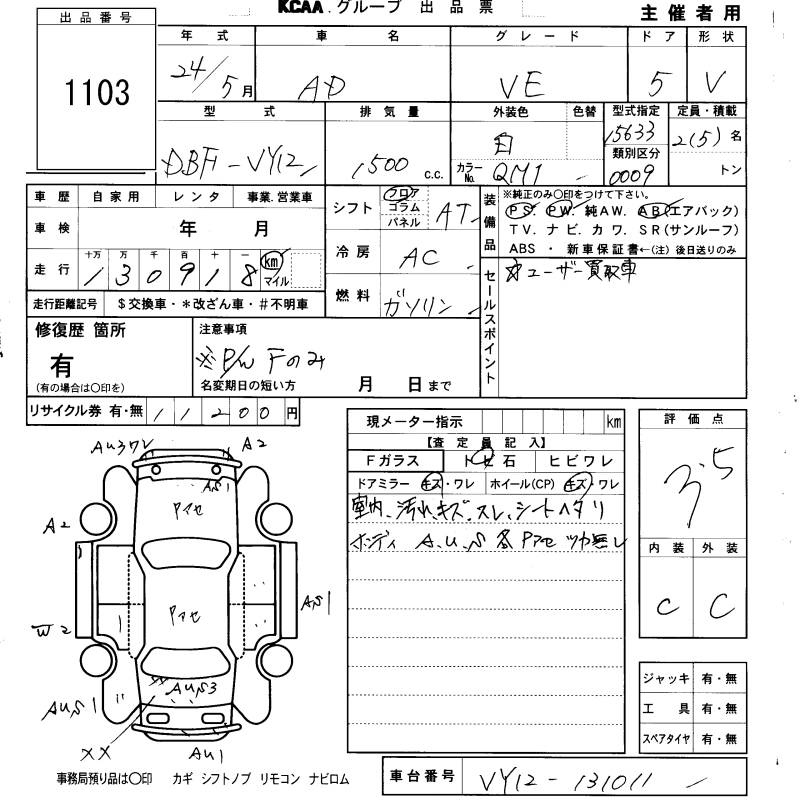 KCAA.グループ 出品票
主催者用
出品番号
1103
年式 車名 グレード ドア 形状
24/5月 AD VE 5 V
型式 排気量 外装色 色替 型式指定 定員・積載
DBF-VY12 1500 c.c. 白 15633 2(5)名
カラーNo. QM1 類別区分 0009 トン
車歴 自家用 レンタ 事業.営業車
車検 年 月
走行 十万 万 千 百 十 一 km マイル
1 3 0 9 1 8
走行距離記号 $交換車・*改ざん車・#不明車
シフト フロア コラム パネル AT
冷房 AC
燃料 ガソリン
装備品
※純正のみ〇印をつけて下さい。
PS. PW. 純AW. AB(エアバック)
TV. ナビ. カワ. SR(サンルーフ)
ABS ・ 新車保証書←(注)後日送りのみ
セールスポイント
☆ユーザー買取車
修復歴 箇所
有
(有の場合は〇印を)
注意事項
※P/W Fのみ
名変期日の短い方 月 日まで
リサイクル券 有・無 11200円
現メーター指示 km
【査定員記入】
Fガラス トビ石 ヒビワレ
ドアミラー キズ・ワレ ホイール(CP) キズ・ワレ
室内、汚れ、キズ、スレ、シートヘタリ
ボディ A.U.S 各 Pアセ ツカ無し
評価点
3.5
内装 外装
C C
ジャッキ 有・無
工具 有・無
スペアタイヤ 有・無
AU3ワレ A2
AS1
Pアセ
A2
Pアセ
AS1
W2
AUS3
AUS1
XX AU1
事務局預り品は〇印 カギ シフトノブ リモコン ナビロム
車台番号 VY12-131011